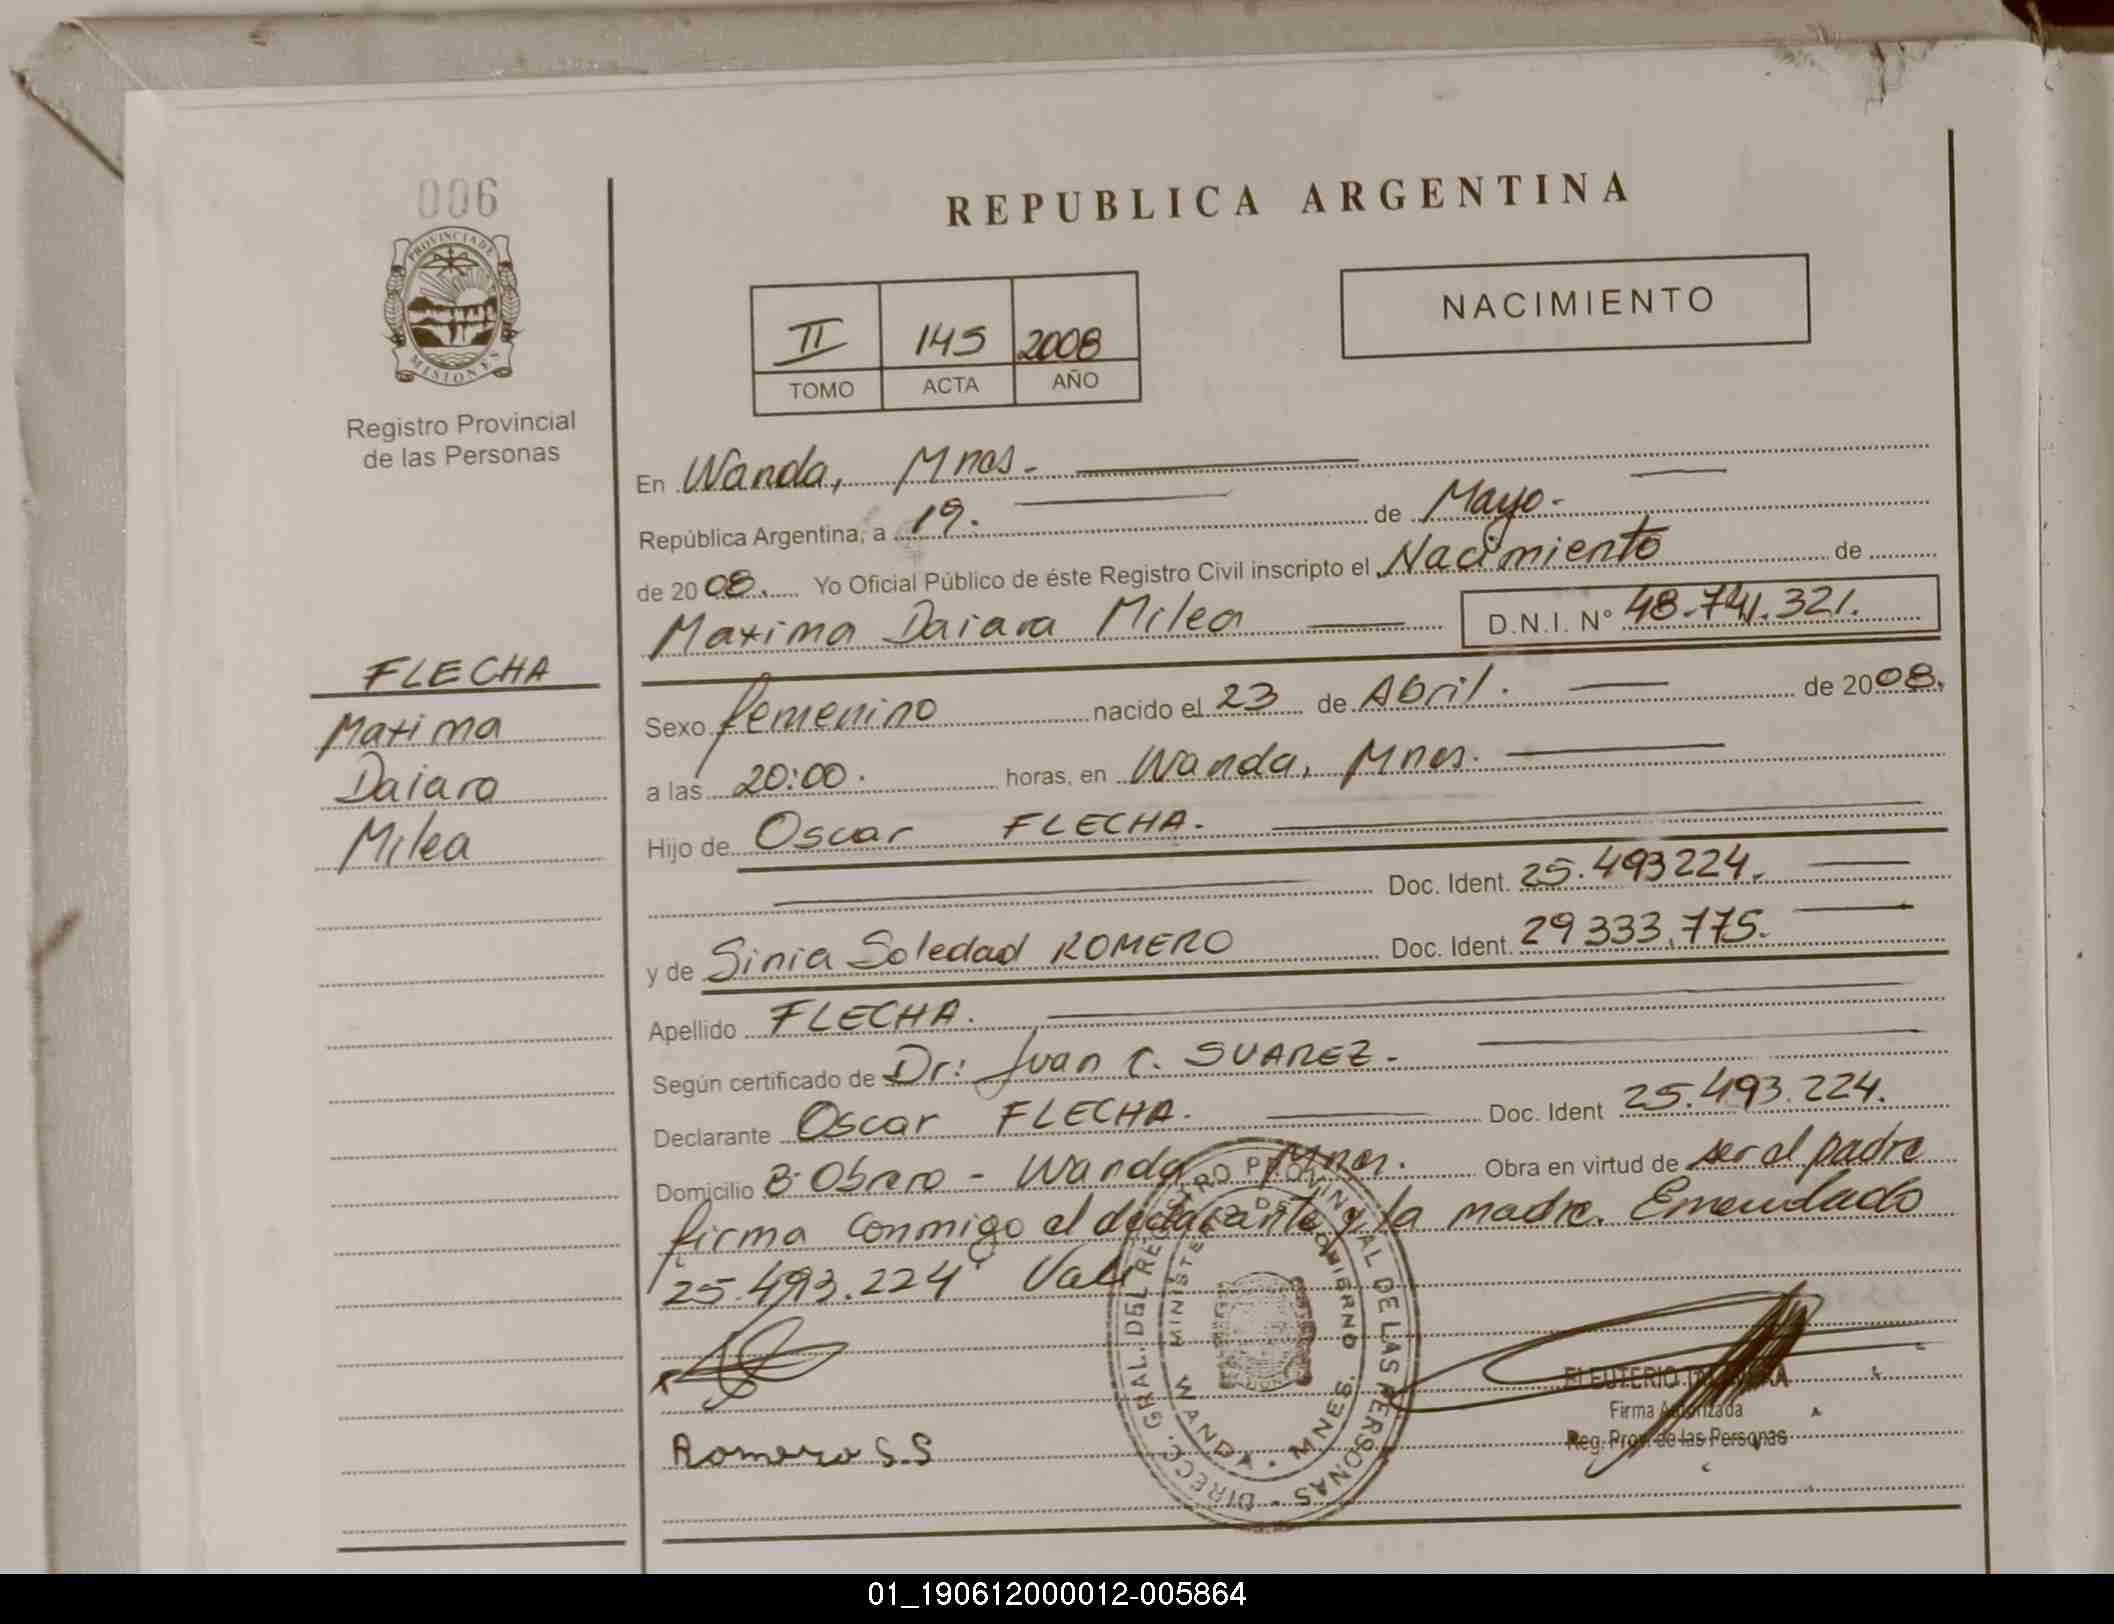 006
PROVINCIA DE
MISIONES
Registro Provincial
de las Personas
REPUBLICA ARGENTINA
NACIMIENTO
II 145 2008
TOMO ACTA AÑO
En Wanda, Mnes.
República Argentina, a 19. de Mayo.
de 2008. Yo Oficial Público de éste Registro Civil inscripto el Nacimiento de
Maxima Daiara Milea D.N.I. N° 48.741.321.
FLECHA
Maxima
Daiara
Milea
Sexo femenino nacido el 23 de Abril. de 2008.
a las 20:00. horas, en Wanda, Mnes.
Hijo de Oscar FLECHA.
Doc. Ident. 25.493224.
y de Sinia Soledad ROMERO Doc. Ident. 29333.775.
Apellido FLECHA.
Según certificado de Dr: Juan C. SUAREZ.
Declarante Oscar FLECHA. Doc. Ident 25.493.224.
Domicilio B. Obrero - Wanda Mnes. Obra en virtud de ser el padre
firma conmigo el declarante y la madre. Emendado
25.493.224" Vale
Romero S.S
DIRECC. GRAL. DEL REGISTRO PROVINCIAL DE LAS PERSONAS
MINISTERIO DE GOBIERNO
WANDA - MNES.
ELEUTERIO
Firma Autorizada
Reg. Prov. de las Personas
01_190612000012-005864